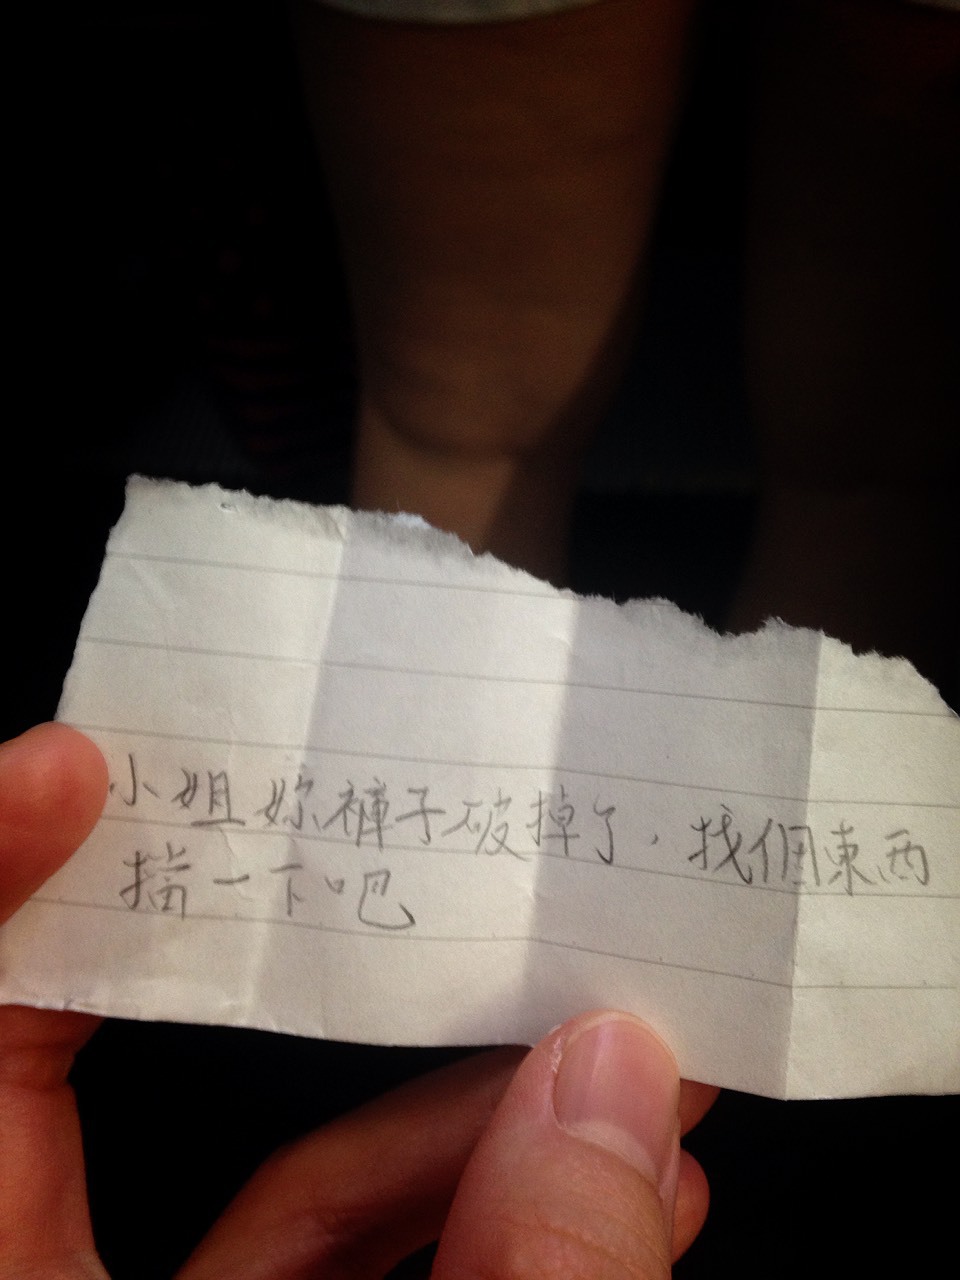 小姐妳褲子破掉了，找個東西
擋一下吧